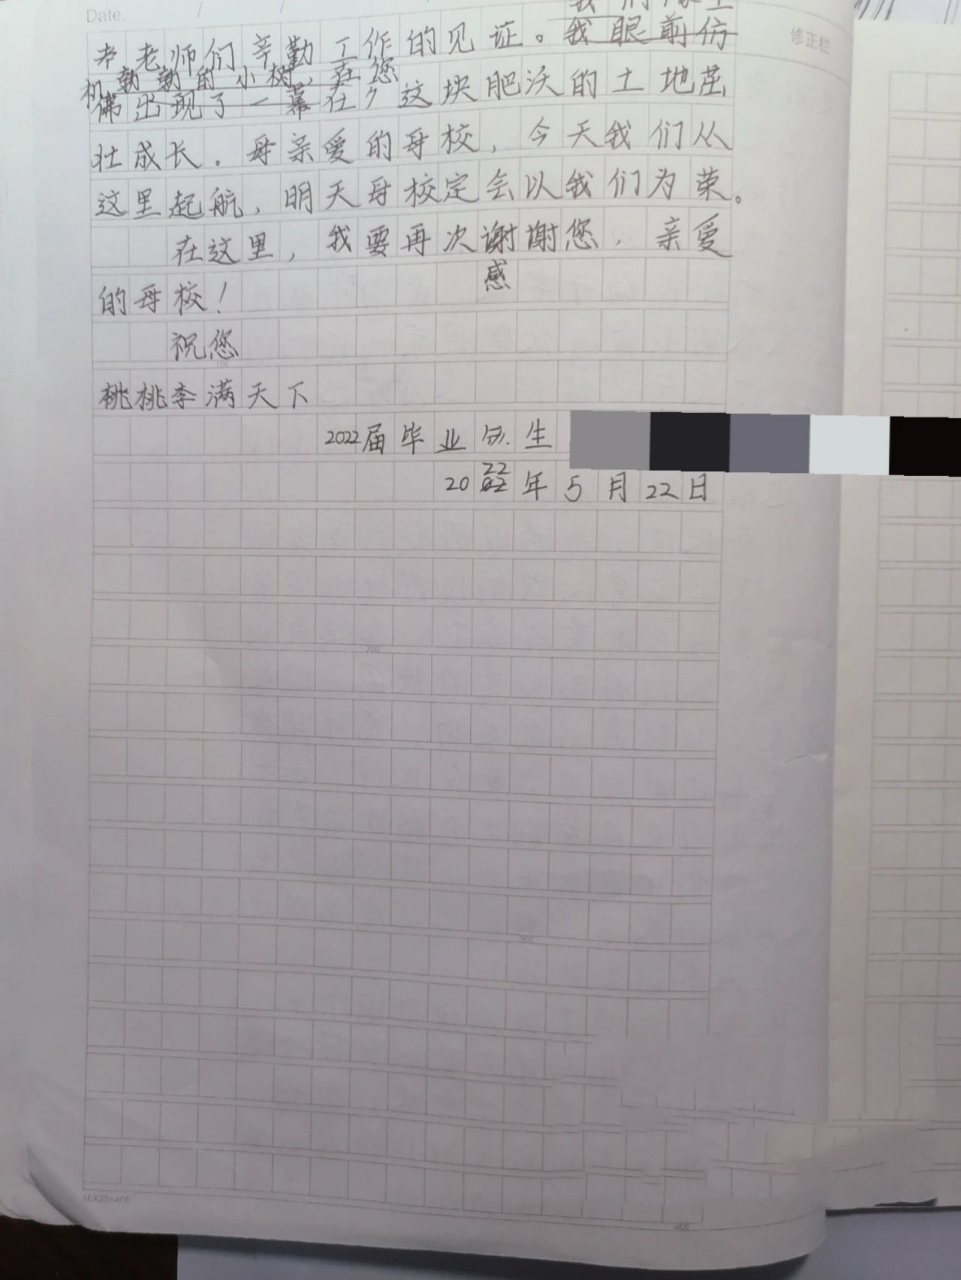 Date.
修正栏
老师们辛勤工作的见证。我眼前仿
朝朝的小树，在您
佛出现了一幕在，这块肥沃的土地茁
壮成长。母亲爱的母校，今天我们从
这里起航，明天母校定会以我们为荣。
在这里，我要再次谢谢您，亲爱
感
的母校！
祝您
桃桃李满天下
2022届毕业 生
22
20 年5月22日